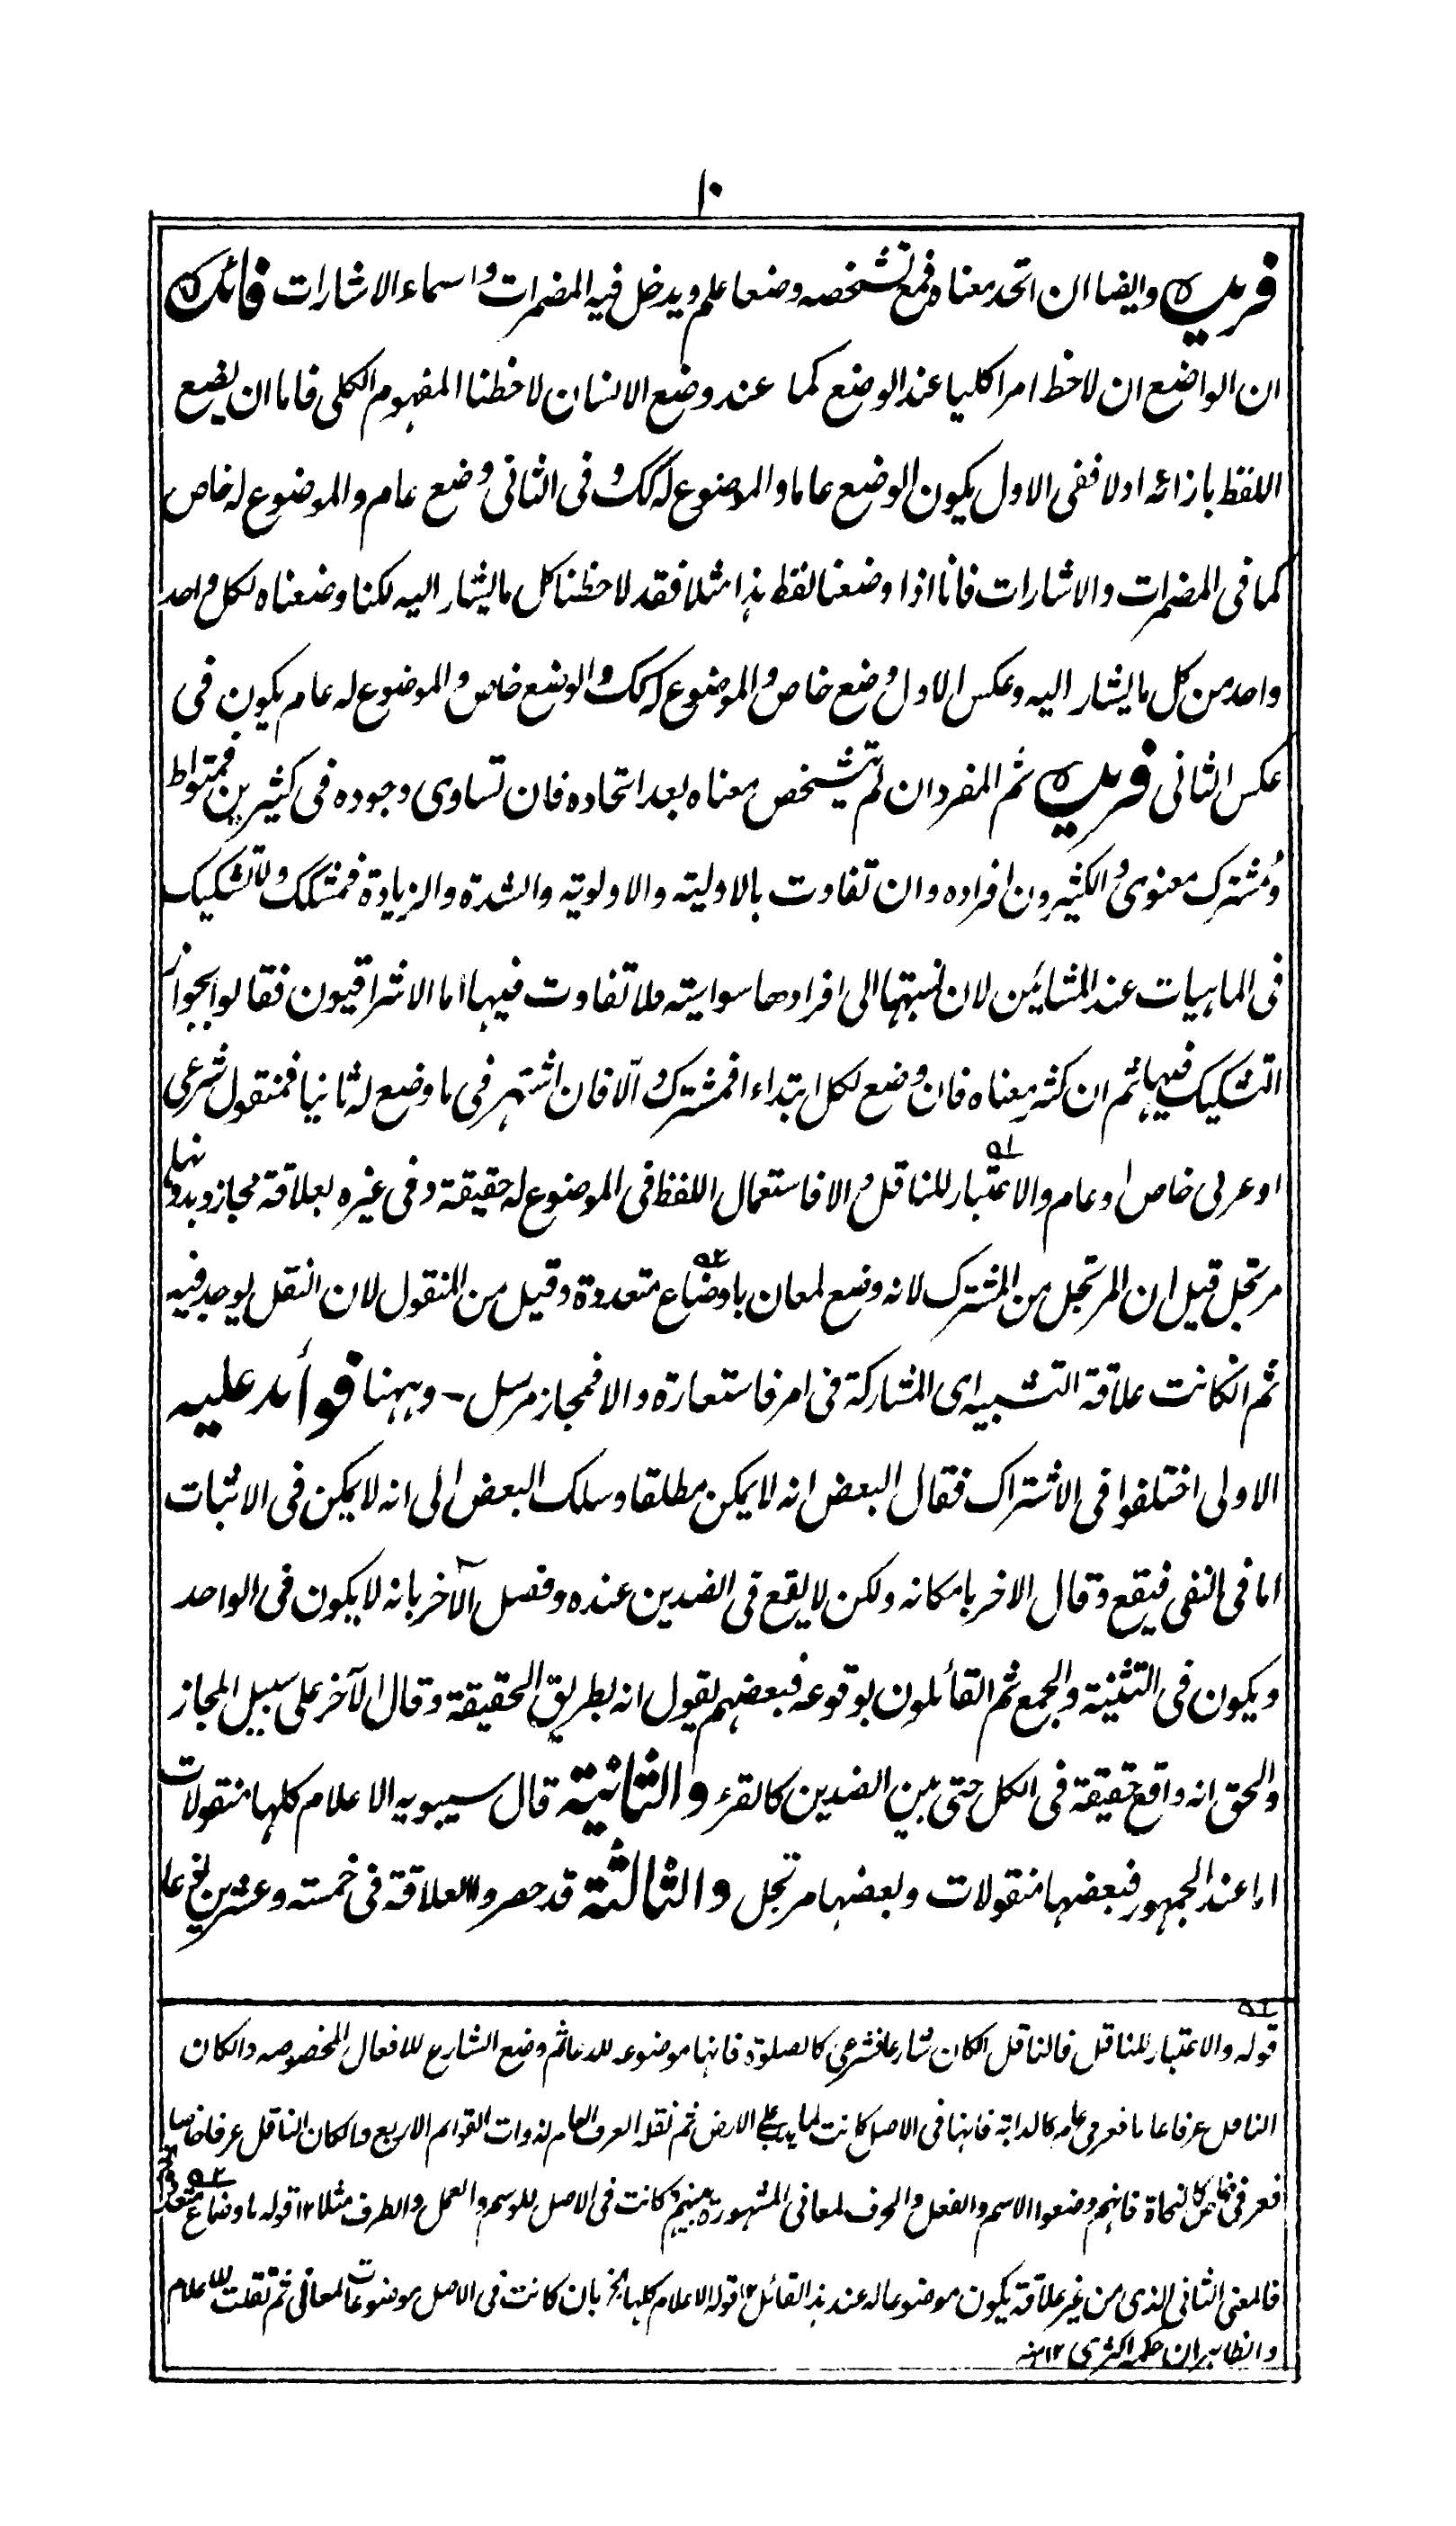 ۱۰
فريدة وايضا ان اتحد معناه فمع تشخصه وضعا علم ويدخل فيه المضمرات واسماء الاشارات فائدة
ان الواضع ان لاحظ امرا كليا عند الوضع كما عند وضع الانسان لاحظنا المفهوم الكلى فاما ان يضع
اللفظ بازائه اولا ففى الاول يكون الوضع عاما والموضوع له كك وفى الثانى وضع عام والموضوع له خاص
كما فى المضمرات والاشارات فانا اذا وضعنا لفظ هذا مثلا فقد لاحظنا كل ما يشار اليه لكنا وضعناه لكل واحد
واحد من كل ما يشار اليه وعكس الاول وضع خاص والموضوع له كك والوضع خاص والموضوع له عام يكون فى
عكس الثانى فريدة ثم المفرد ان لم يتشخص معناه بعد اتحاده فان تساوى وجوده فى كثيرين فمتواط
ومشترك معنوى والكثيرون افراده وان تفاوت بالاولية والاولوية والشدة والزيادة فمشكك ولا تشكيك
فى الماهيات عند المشائين لان نسبتها الى افرادها سواسية فلا تفاوت فيها اما الاشراقيون فقالوا بجواز
التشكيك فيها ثم ان كثر معناه فان وضع لكل ابتداء افمشترك والّا فان اشتهر فى ما وضع له ثانيا فمنقول شرعى
او عرفى خاص او عام والاعتبار للناقل والا فاستعمال اللفظ فى الموضوع له حقيقة وفى غيره بعلاقة مجاز وبدونها
مرتجل قيل ان المرتجل من المشترك لانه وضع لمعان باوضاع متعددة وقيل من المنقول لان النقل يوجد فيه
ثم انكانت علاقة التشبيه اى المشاركة فى امر فاستعارة والا فمجاز مرسل - وههنا فوائد عليه
الاولى اختلفوا فى الاشتراك فقال البعض انه لا يمكن مطلقا وسلك البعض الى انه لا يمكن فى الاثبات
اما فى النفى فيقع وقال الاخر بامكانه ولكن لا يقع فى الضدين عنده وفصل الآخر بانه لا يكون فى الواحد
ويكون فى التثنية والجمع ثم القائلون بوقوعه فبعضهم يقول انه بطريق الحقيقة وقال الآخر على سبيل المجاز
والحق انه واقع حقيقة فى الكل حتى بين الضدين كالقرء والثانية قال سيبويه الاعلام كلها منقولات
اما عند الجمهور فبعضها منقولات وبعضها مرتجل والثالثة قد حصروا العلاقة فى خمسة وعشرين نوعا
قوله والاعتبار للناقل فالناقل انكان شارعا فشرعى كالصلوة فانها موضوعه للدعا ثم وضع الشارع للافعال المخصوصه وانكان
الناقل عرفا عاما فعرفى عام كالدابة فانها فى الاصل كانت لما يدب على الارض ثم نقله العرف العام لذوات القوائم الاربع وانكان الناقل عرفا خاصا
فعرفى خاص كالنحاة فانهم وضعوا الاسم والفعل والحرف لمعانى المشهورة بينهم وكانت فى الاصل للوسم والعمل والطرف مثلا ١٢ قوله باوضاع متعددة
فالمعنى الثانى الذى من غير علاقة يكون موضوعا له عند هذا القائل ١٢ قوله الاعلام كلها الخ بان كانت فى الاصل موضوعات لمعانى ثم نقلت للاعلام
والظاهر ان حكمه اكثرى ١٢ منه